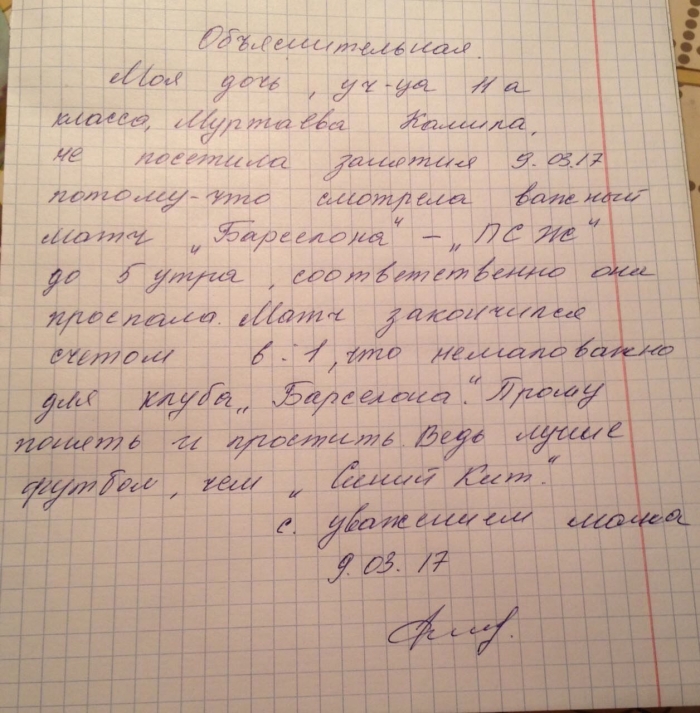 Объяснительная.
Моя дочь, уч-ца 11 а
класса, Муртаева Камила,
не посетила занятия 9.03.17
потому-что смотрела важный
матч „Барселона" – „ПСЖ"
до 5 утра, соответственно она
проспала. Матч закончился
счетом 6:1, что немаловажно
для клуба „Барселона". Прошу
понять и простить. Ведь лучше
футбол, чем „Синий Кит."
с. уважением мама
9.03.17